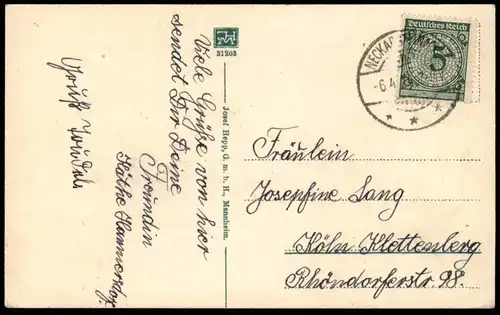 Viele Grüße von hier
sendet Dir Deine
Freundin
Käthe Hammersdorf.
Gruß
31203
Josef Hepp, G. m. b. H., Mannheim.
Deutsches Reich
5
NECKAR
-6.4.
Fräulein
Josefine Lang
Köln Klettenberg
Rhöndorferstr 98.